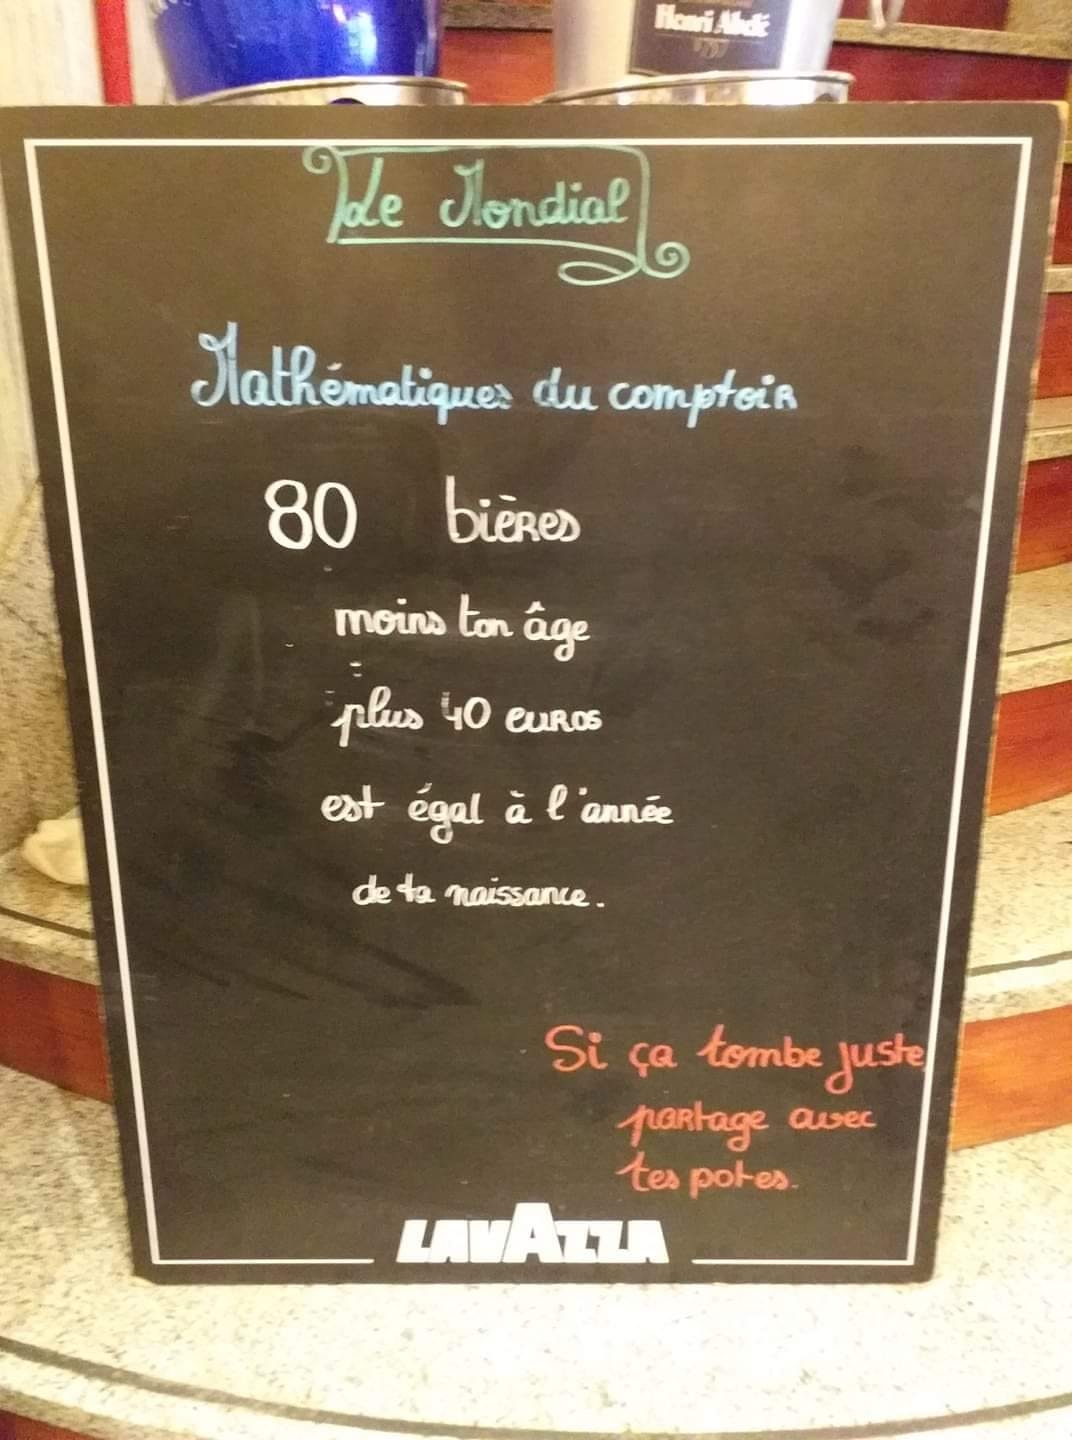 Henri Abelé
Le Mondial
Mathématiques du comptoir
80 bières
moins ton âge
plus 40 euros
est égal à l'année
de ta naissance.
Si ça tombe juste
partage avec
tes potes.
LAVAZZA